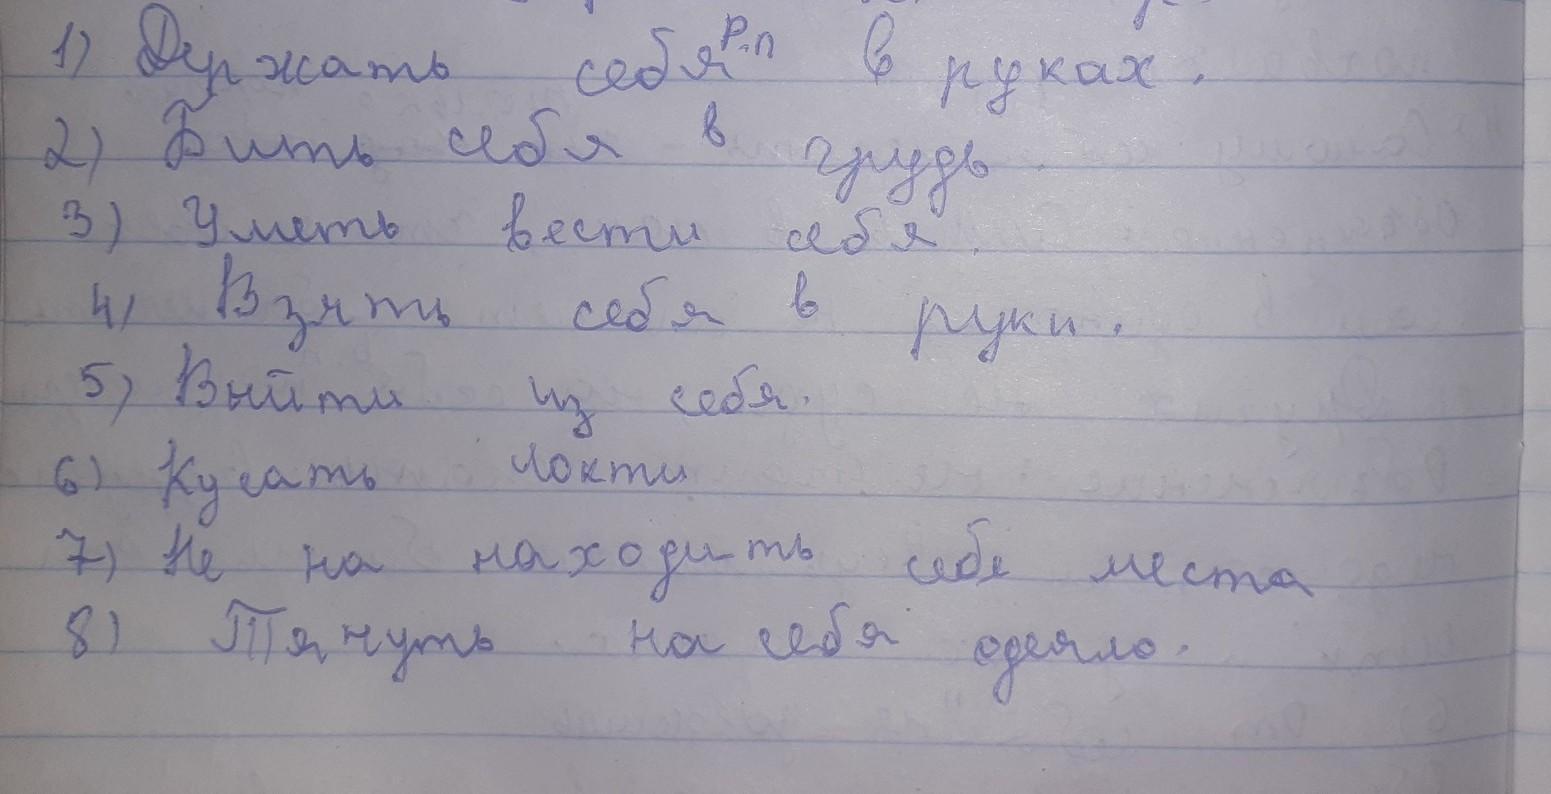 1) Держать себя Р.п в руках.
2) Бить себя в грудь.
3) Уметь вести себя.
4) Взять себя в руки.
5) Выйти из себя.
6) Кусать локти
7) Не на находить себе места
8) Тянуть на себя одеяло.